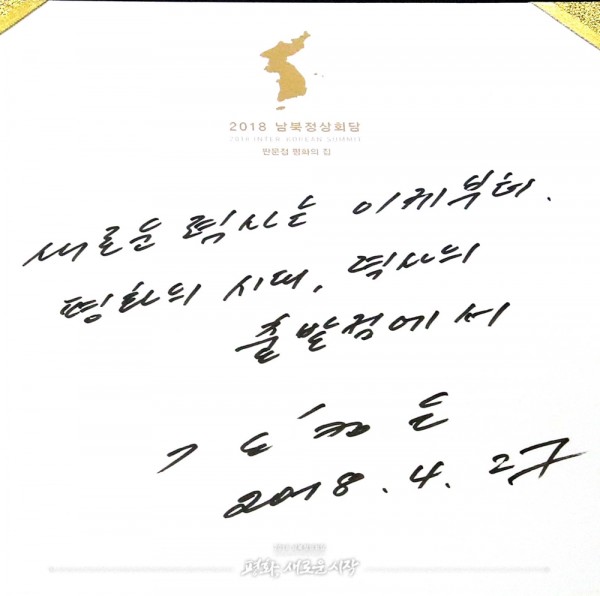 2018 남북정상회담
2018 INTER-KOREAN SUMMIT
판문점 평화의 집
새로운 력사는 이제부터.
평화의 시대, 력사의
출발점에서
김정은
2018. 4. 27
평화, 새로운 시작